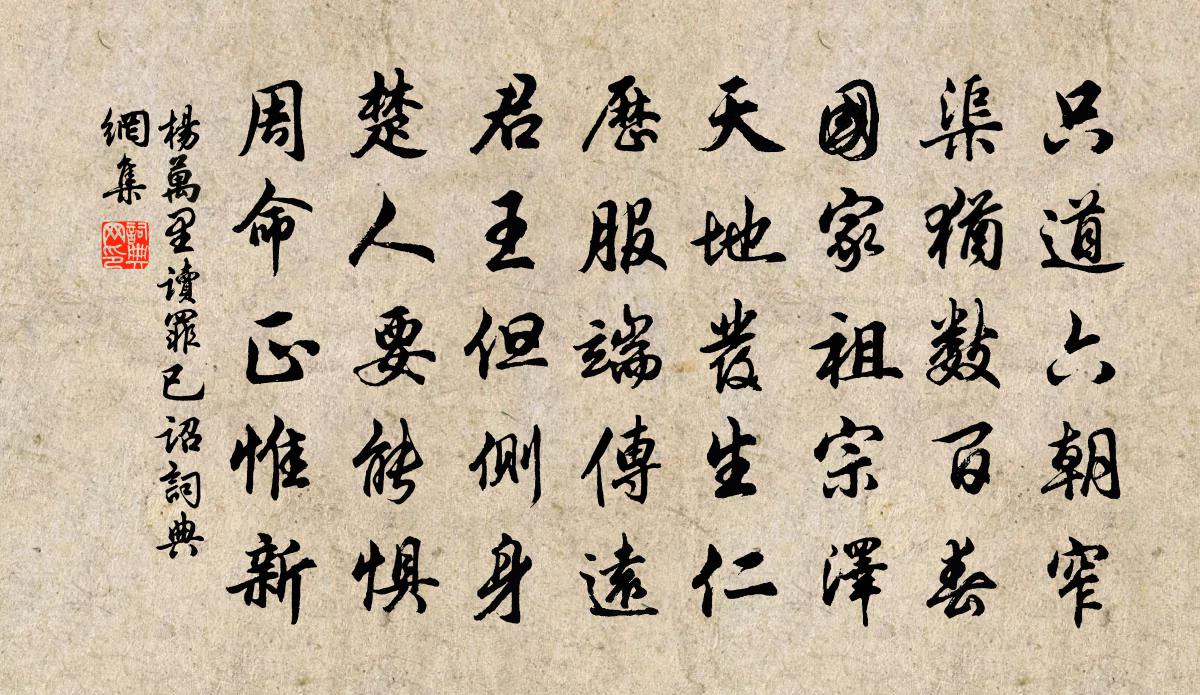 只道六朝窄
渠猶數百春
國家祖宗澤
天地發生仁
歷服端傳遠
君王但側身
楚人要能懼
周命正惟新
楊萬里讀罪己詔詞典
網集
詞典
网印